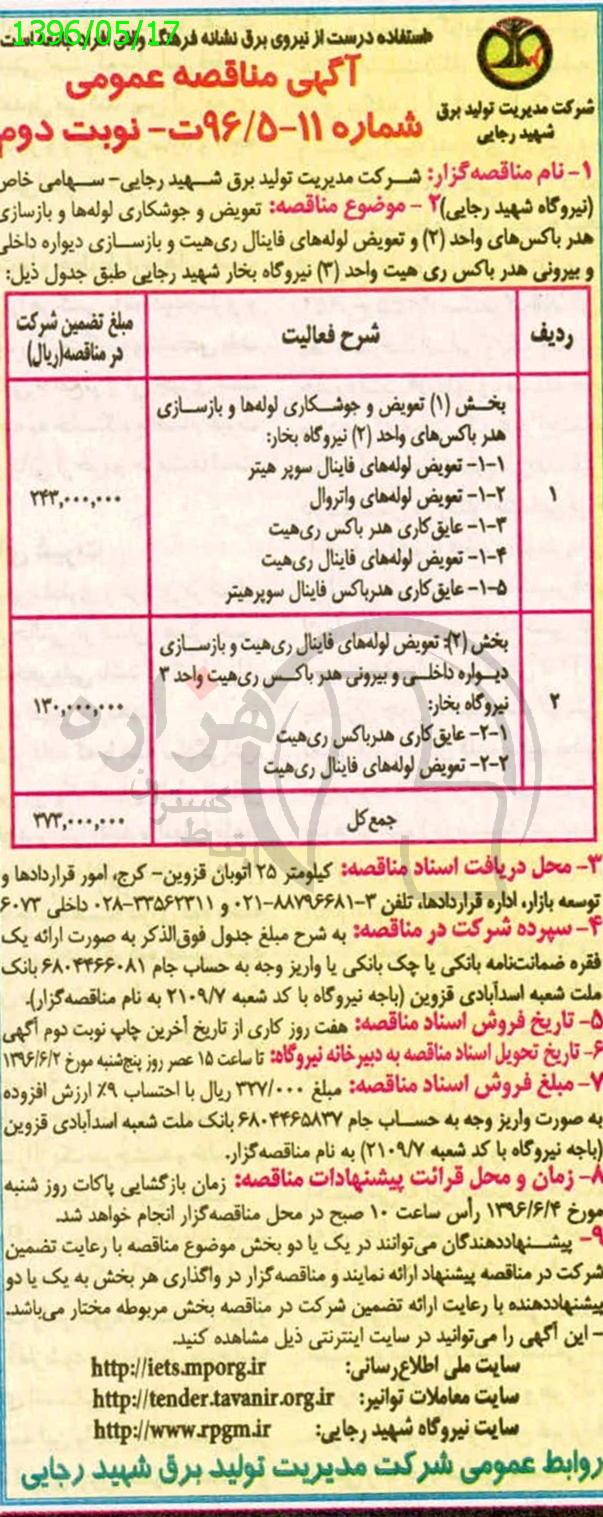 1396/05/17
استفاده درست از نیروی برق نشانه فرهنگ والای افراد جامعه است
شرکت مدیریت تولید برق
شهید رجایی
آگهی مناقصه عمومی
شماره ۱۱-۹۶/۵ت- نوبت دوم
۱- نام مناقصه‌گزار: شرکت مدیریت تولید برق شهید رجایی- سهامی خاص
(نیروگاه شهید رجایی) ۲- موضوع مناقصه: تعویض و جوشکاری لوله‌ها و بازسازی
هدر باکس‌های واحد (۲) و تعویض لوله‌های فاینال ری‌هیت و بازسازی دیواره داخلی
و بیرونی هدر باکس ری هیت واحد (۳) نیروگاه بخار شهید رجایی طبق جدول ذیل:
ردیف	شرح فعالیت	مبلغ تضمین شرکت
در مناقصه(ریال)
بخش (۱) تعویض و جوشکاری لوله‌ها و بازسازی
هدر باکس‌های واحد (۲) نیروگاه بخار:
۱-۱- تعویض لوله‌های فاینال سوپر هیتر
۱	۱-۲- تعویض لوله‌های واتروال	۲۴۳,۰۰۰,۰۰۰
۱-۳- عایق‌کاری هدر باکس ری‌هیت
۱-۴- تعویض لوله‌های فاینال ری‌هیت
۱-۵- عایق‌کاری هدرباکس فاینال سوپرهیتر
بخش (۲): تعویض لوله‌های فاینال ری‌هیت و بازسازی
دیواره داخلی و بیرونی هدر باکس ری‌هیت واحد ۳
۲	نیروگاه بخار:	۱۳۰,۰۰۰,۰۰۰
۲-۱- عایق‌کاری هدرباکس ری‌هیت
۲-۲- تعویض لوله‌های فاینال ری‌هیت
جمع کل	۳۷۳,۰۰۰,۰۰۰
هزاره
گسترش
ارتباط
۳- محل دریافت اسناد مناقصه: کیلومتر ۲۵ اتوبان قزوین- کرج، امور قراردادها و
توسعه بازار، اداره قراردادها، تلفن ۳-۸۸۷۹۶۶۸۱-۰۲۱ و ۳۳۵۶۲۳۱۱-۰۲۸ داخلی ۶۰۷۳
۴- سپرده شرکت در مناقصه: به شرح مبلغ جدول فوق‌الذکر به صورت ارائه یک
فقره ضمانتنامه بانکی یا چک بانکی یا واریز وجه به حساب جام ۶۸۰۴۴۶۶۰۸۱ بانک
ملت شعبه اسدآبادی قزوین (باجه نیروگاه با کد شعبه ۲۱۰۹/۷ به نام مناقصه‌گزار).
۵- تاریخ فروش اسناد مناقصه: هفت روز کاری از تاریخ آخرین چاپ نوبت دوم آگهی
۶- تاریخ تحویل اسناد مناقصه به دبیرخانه نیروگاه: تا ساعت ۱۵ عصر روز پنج‌شنبه مورخ ۱۳۹۶/۶/۲
۷- مبلغ فروش اسناد مناقصه: مبلغ ۳۲۷/۰۰۰ ریال با احتساب ۹٪ ارزش افزوده
به صورت واریز وجه به حساب جام ۶۸۰۴۴۶۵۸۳۷ بانک ملت شعبه اسدآبادی قزوین
(باجه نیروگاه با کد شعبه ۲۱۰۹/۷) به نام مناقصه‌گزار.
۸- زمان و محل قرائت پیشنهادات مناقصه: زمان بازگشایی پاکات روز شنبه
مورخ ۱۳۹۶/۶/۴ رأس ساعت ۱۰ صبح در محل مناقصه‌گزار انجام خواهد شد.
۹- پیشنهاددهندگان می‌توانند در یک یا دو بخش موضوع مناقصه با رعایت تضمین
شرکت در مناقصه پیشنهاد ارائه نمایند و مناقصه‌گزار در واگذاری هر بخش به یک یا دو
پیشنهاددهنده با رعایت ارائه تضمین شرکت در مناقصه بخش مربوطه مختار می‌باشد.
- این آگهی را می‌توانید در سایت اینترنتی ذیل مشاهده کنید.
سایت ملی اطلاع‌رسانی: http://iets.mporg.ir
سایت معاملات توانیر: http://tender.tavanir.org.ir
سایت نیروگاه شهید رجایی: http://www.rpgm.ir
روابط عمومی شرکت مدیریت تولید برق شهید رجایی